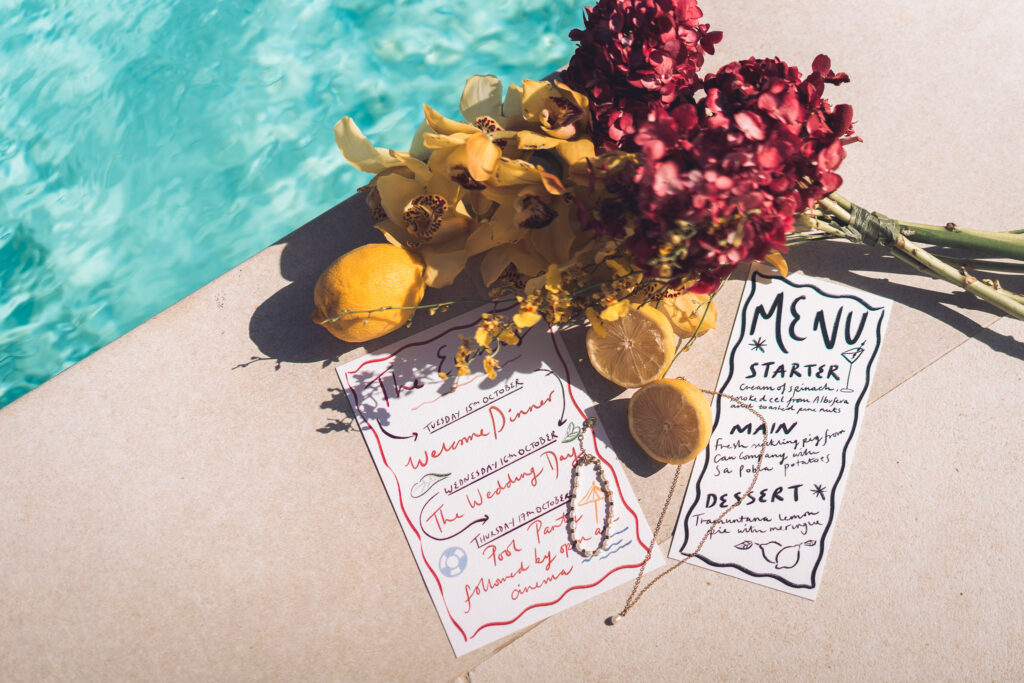 The
TUESDAY 15TH OCTOBER
Welcome Dinner
WEDNESDAY 16TH OCTOBER
The Wedding Day
THURSDAY 17TH OCTOBER
Pool Party
followed by open a
cinema
MENU
STARTER
Cream of spinach,
smoked eel from Albufera
and toasted pine nuts
MAIN
Fresh suckling pig from
Can Company with
Sa Pobla potatoes
DESSERT
Tramuntana lemon
pie with meringue